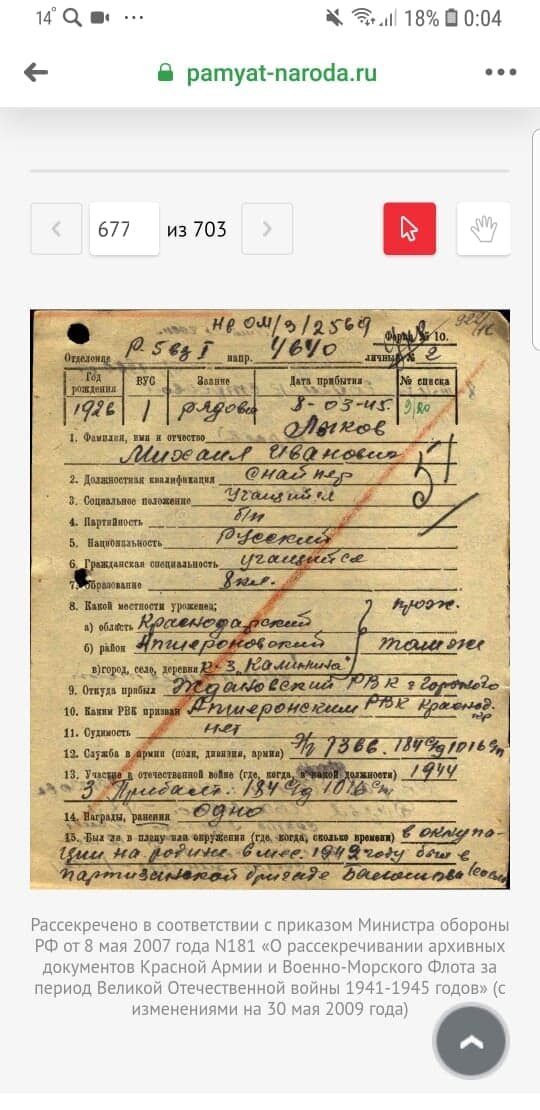 14° ...
18% 0:04
pamyat-naroda.ru
677 из 703
Нв ОМ/3/2569
Форма № 10.
Отделение Р. 5 вз I напр. 4640 личный № 2
Год рождения ВУС Звание Дата прибытия № списка
1926 1 рядово 8-03-45. 3/20
1. Фамилия, имя и отчество Лыков
Михаил Иванович
2. Должностная квалификация Снайпер
3. Социальное положение Учащийся
4. Партийность б/п
5. Национальность Русский
6. Гражданская специальность учащийся
7. Образование 8 кл.
8. Какой местности уроженец; прож.
а) область Краснодарский
б) район Апшероновский там же
в)город, село, деревня к-з "Калинина"
9. Откуда прибыл Ждановский РВК г Горького
10. Каким РВК призван Апшеронским РВК Краснод.
кр
11. Судимость нет
12. Служба в армии (полк, дивизия, армия) 7366. 184 с/д 1016 сп
13. Участие в отечественной войне (где, когда, в какой должности) 1944
3 Прибалт: 184 с/д 1016 сп
14. Награды, ранения одно
15. Был ли в плену или окружении (где, когда, сколько времени) в оккупа-
ции на родине 6 мес. 1942 году был в
партизанской бригаде
Рассекречено в соответствии с приказом Министра обороны
РФ от 8 мая 2007 года N181 «О рассекречивании архивных
документов Красной Армии и Военно-Морского Флота за
период Великой Отечественной войны 1941-1945 годов» (с
изменениями на 30 мая 2009 года)